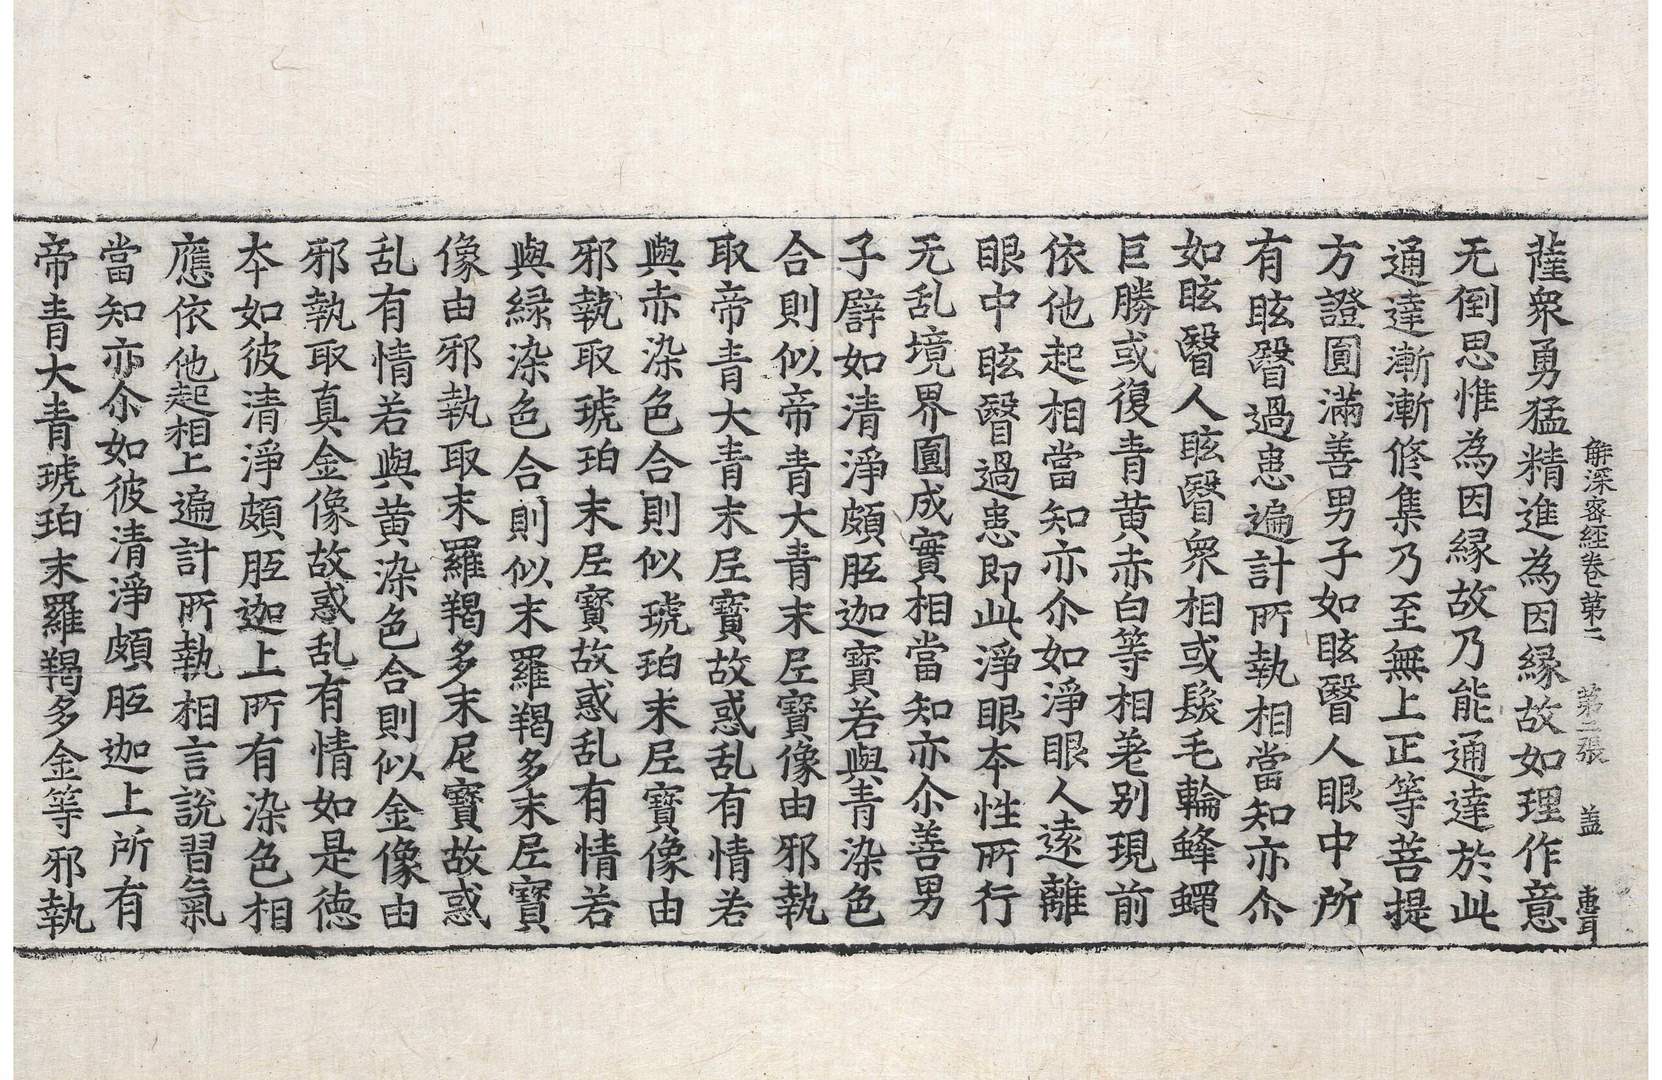 解深密經卷第二 第二張 盖
薩衆勇猛精進為因緣故如理作意
无倒思惟為因緣故乃能通達於此
通達漸漸修集乃至無上正等菩提
方證圓滿善男子如眩瞖人眼中所
有眩瞖過患遍計所執相當知亦尒
如眩瞖人眩瞖衆相或髮毛輪蜂蠅
巨勝或復青黄赤白等相差别現前
依他起相當知亦尒如淨眼人遠離
眼中眩瞖過患即此淨眼本性所行
无乱境界圓成實相當知亦尒善男
子譬如清淨頗胝迦寶若與青染色
合則似帝青大青末尼寶像由邪執
取帝青大青末尼寶故惑乱有情若
與赤染色合則似琥珀末尼寶像由
邪執取琥珀末尼寶故惑乱有情若
與緑染色合則似末羅羯多末尼寶
像由邪執取末羅羯多末尼寶故惑
乱有情若與黄染色合則似金像由
邪執取真金像故惑乱有情如是德
本如彼清淨頗胝迦上所有染色相
應依他起相上遍計所執相言說習氣
當知亦尒如彼清淨頗胝迦上所有
帝青大青琥珀末羅羯多金等邪執